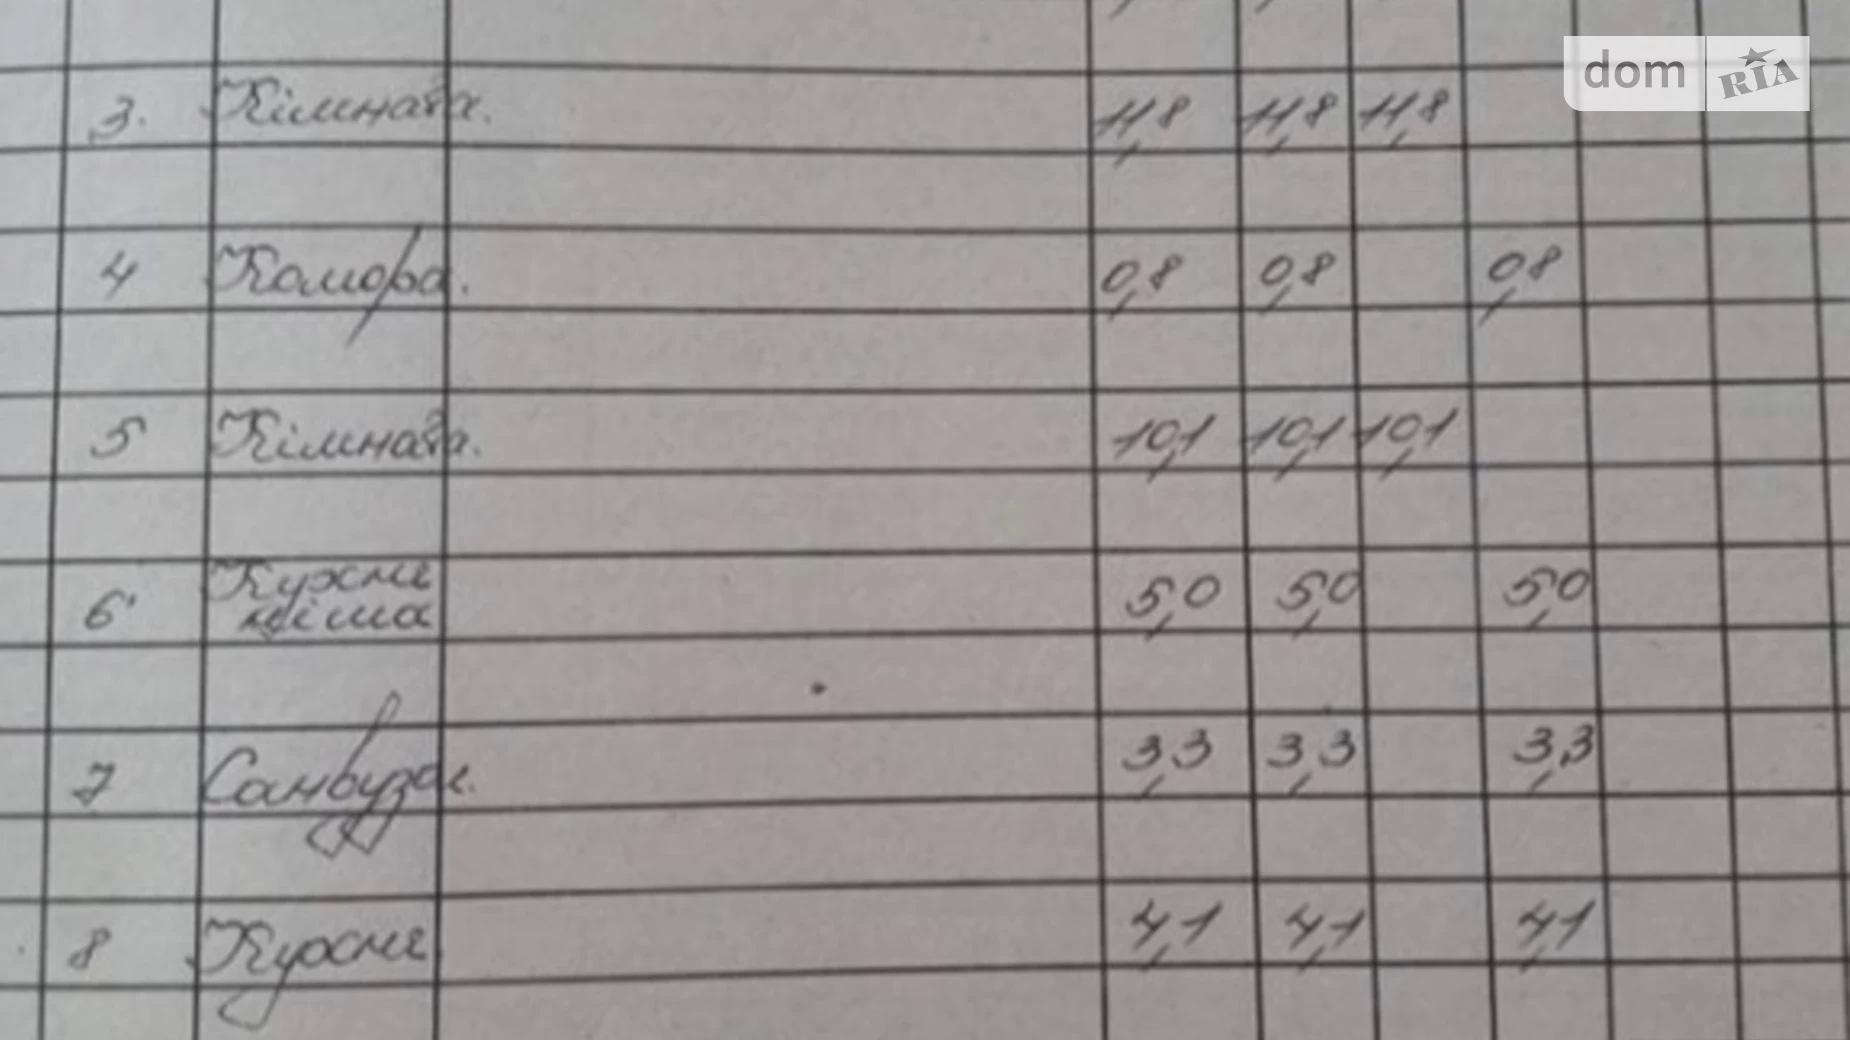 dom RIA
3. Кімната. 11,8 11,8 11,8
4 Комора. 0,8 0,8 0,8
5 Кімната. 10,1 10,1 10,1
Кухня
6 ніша 5,0 5,0 5,0
7 Санвузол. 3,3 3,3 3,3
8 Кухня 4,1 4,1 4,1